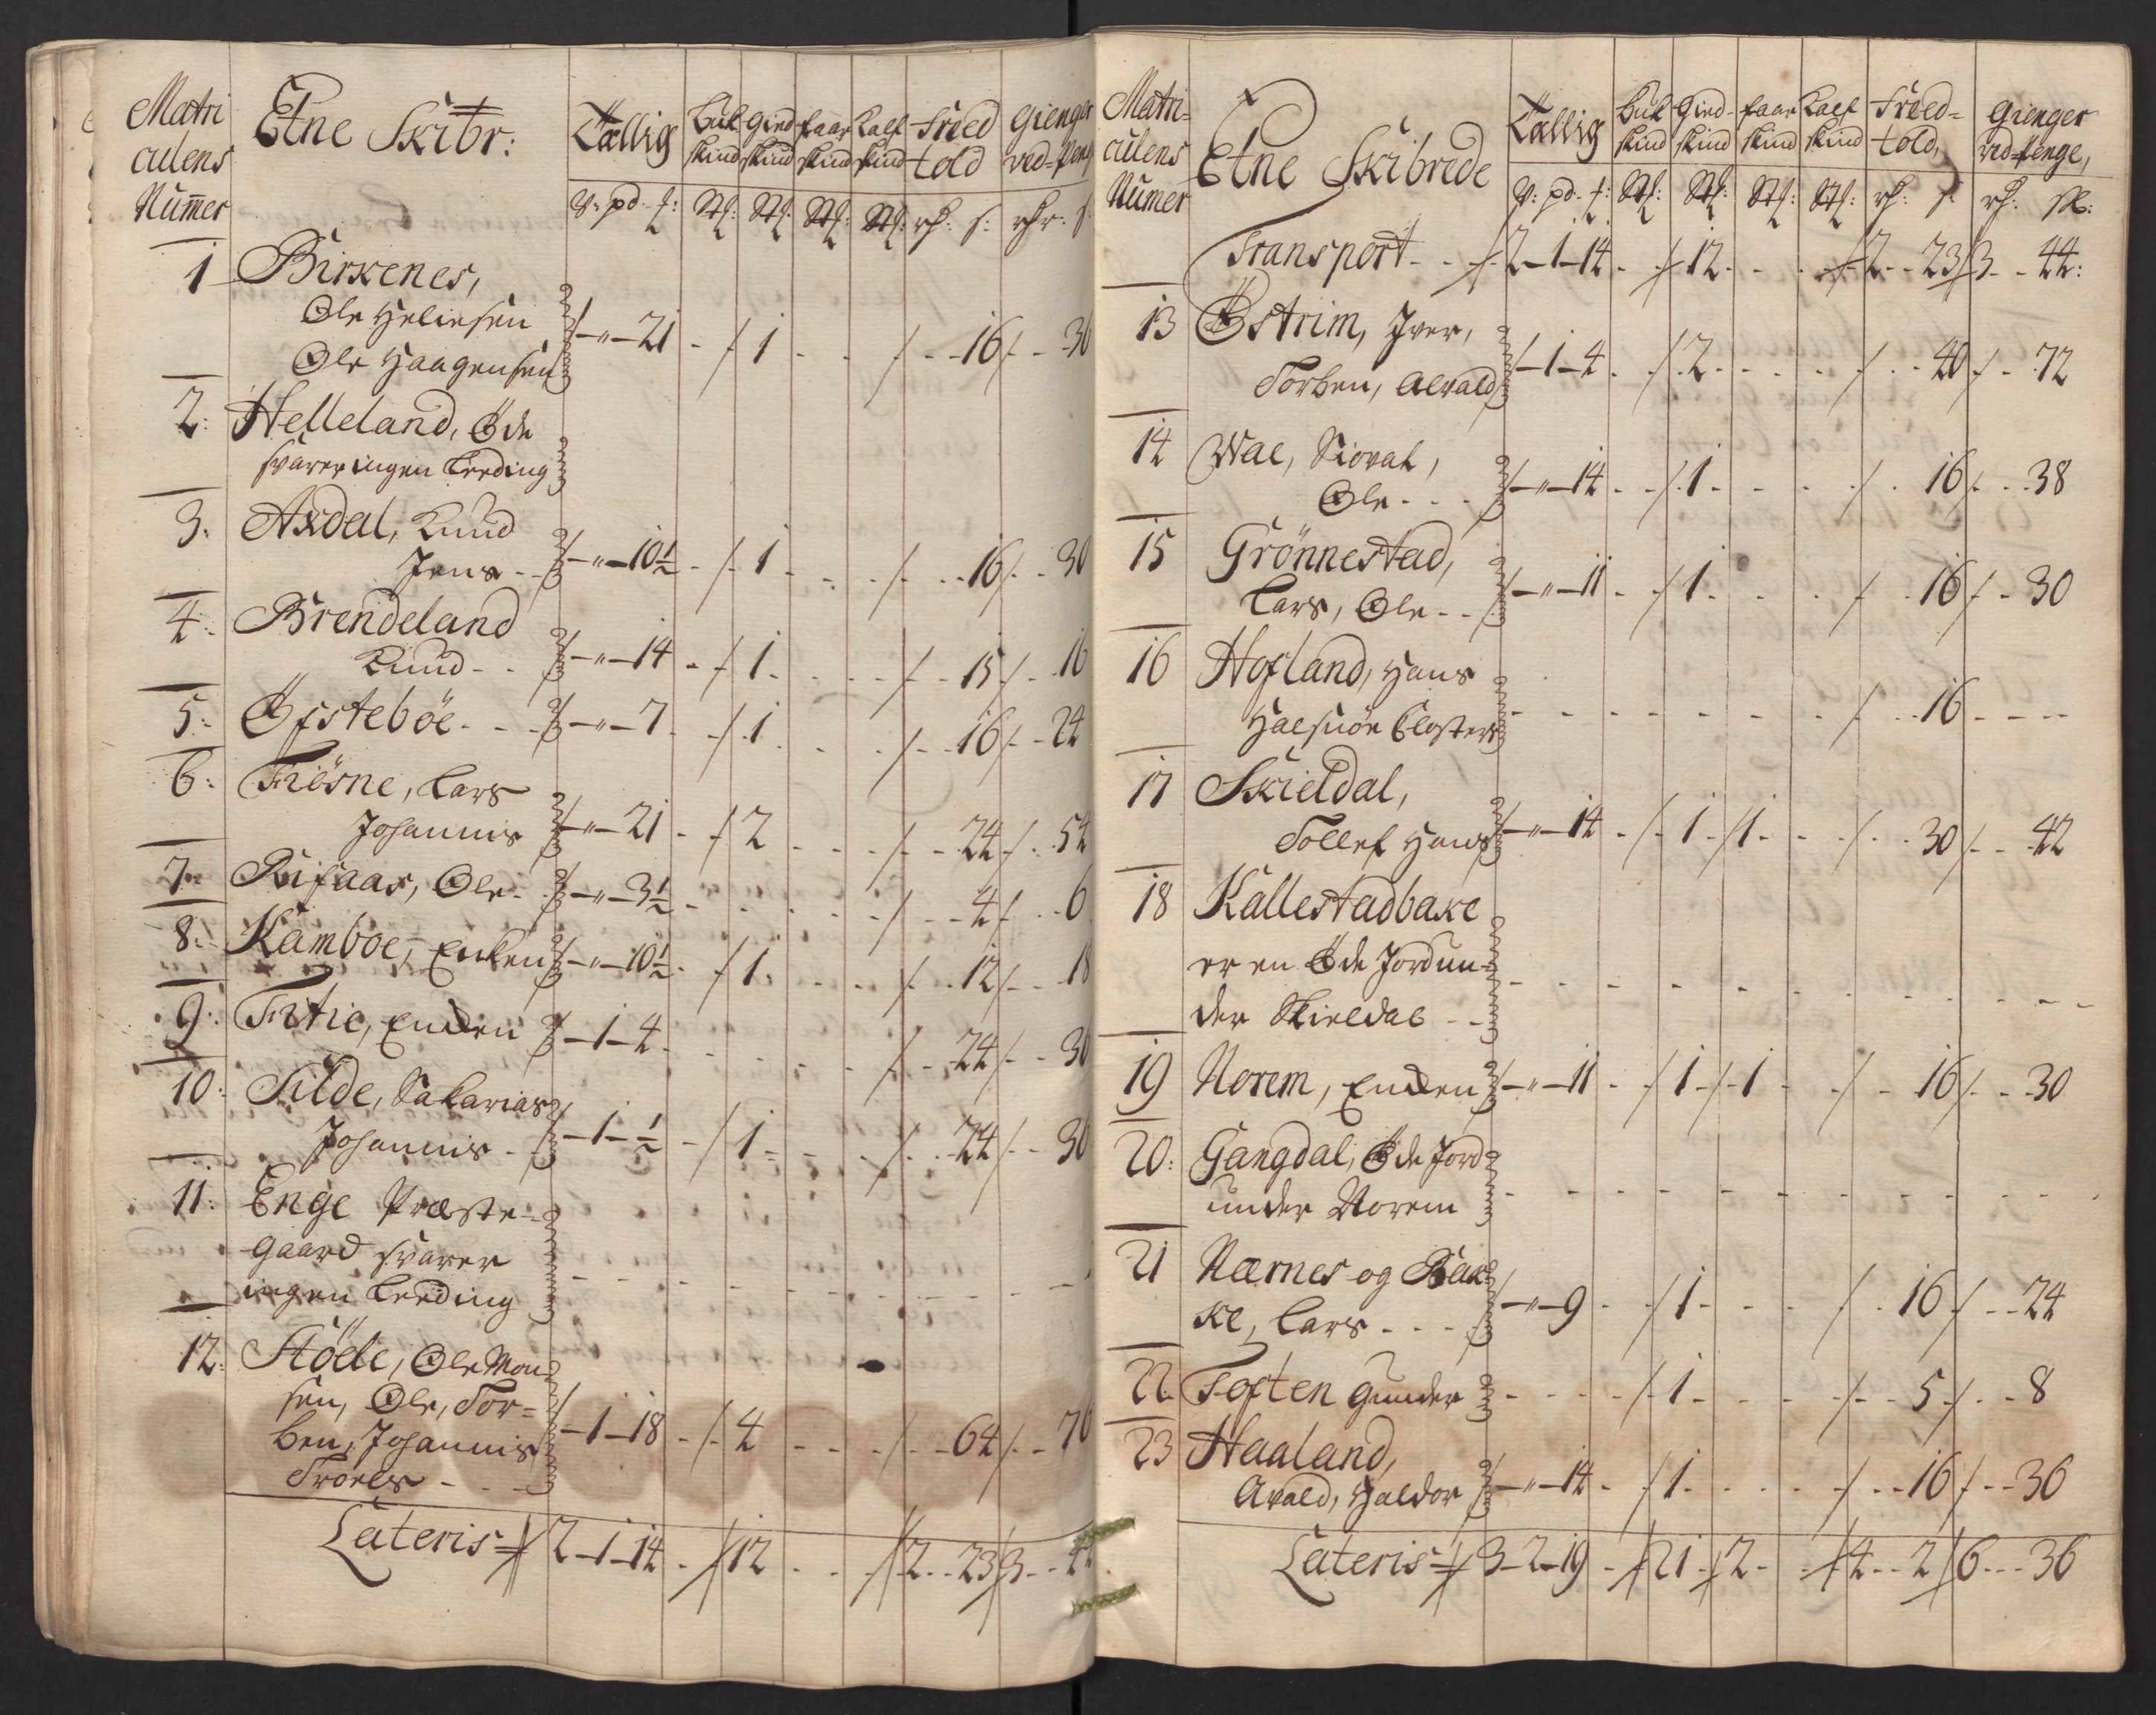 Matri
culens
Num̄er
Etne Skibr:
Tællig
Buk skind
Gied skind
faar skind
Kalf skind
Fried told
Gienger ved Peng
V: pd f: Stk: Stk: Stk: Stk: rd: s: rdr: s:
1 Birkenes,
Ole Heliesen
Ole Haagensen - " - 21 - 1 - - 16 - 30
2: Helleland, Øde
svarer ingen Leeding
3: Axdal, Knud
Jens - - " - 10½ - 1 - - 16 - 30
4: Brendeland
Knud - - " - 14 - 1 - - 15 - 16
5: Øfstebøe - - " - 7 - 1 - - 16 - 24
6: Fiøsne, Lars
Johannis - " - 21 - 2 - - 24 - 54
7: Rifaar, Ole - - " - 3½ - - 4 - 6
8: Kamboe, Enken - " - 10½ - 1 - - 12 - 18
9: Fitie, Enken - 1 - 4 - - 24 - 30
10: Silde, Sakarias
Johannis - - 1 - ½ - 1 - - 24 - 30
11: Enge Præste-
gaard svarer
ingen Leeding - - -
12: Støle, Ole Mon-
sen, Ole, Tor=
ben, Johannis
Troels - - 1 - 18 - 4 - - 64 - 76
Lateris 2 - 1 - 14 - 12 - - 2 - 23 3 - 44
Matri=
culens
Numer
Etne Skibrede
Tællig
Buk skind
Gied- skind
faar skind
Kalf skind
Fried= told,
Gienger ved Penge,
V: pd: f: Stk: Stk: Stk: Stk: rd: s: rd: sk:
Transport - - 2 - 1 - 14 - 12 - - 2 - 23 3 - 44:
13 Østrim, Iver,
Torben, Alvald - 1 - 4 - 2 - - 40 - 72
14 Wae, Siovat,
Ole - - - " - 14 - 1 - - 16 - 38
15 Grönnestad,
Lars, Ole - - " - 11 - 1 - - 16 - 30
16 Hofland, Hans
Halsnøe Closters - - - 16 - - -
17 Skieldal,
Tollef Hans - " - 14 - 1 - 1 - - 30 - 42
18 Kallestadbake
er en Øde Jord un-
der Skieldal - - -
19 Norem, Enken - " - 11 - 1 - 1 - - 16 - 30
20: Gangdal, Øde Jord
under Norem - - -
21 Nærnes og Bak-
ke, Lars - - - " - 9 - 1 - - 16 - 24
22 Toften Gunder - - - 1 - - 5 - 8
23 Haaland,
Avald, Haldor - " - 14 - 1 - - 16 - 36
Lateris 3 - 2 - 19 - 21 - 2 - - 4 - 2 6 - 36